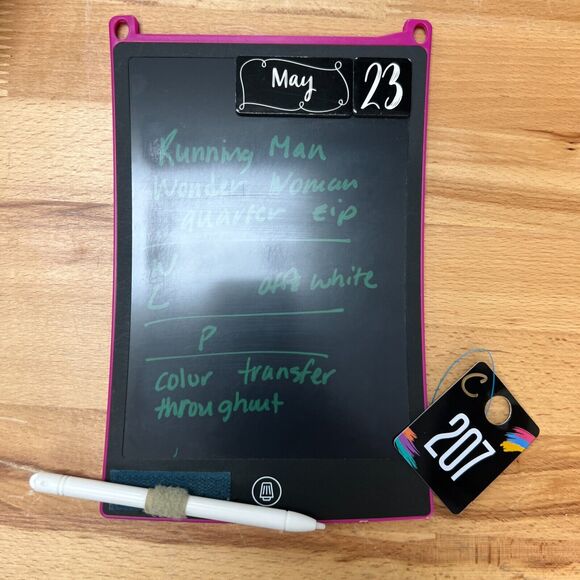 May 23
Running Man
Wonder Woman
quarter zip
N
L off white
P
color transfer
throughout
C
207